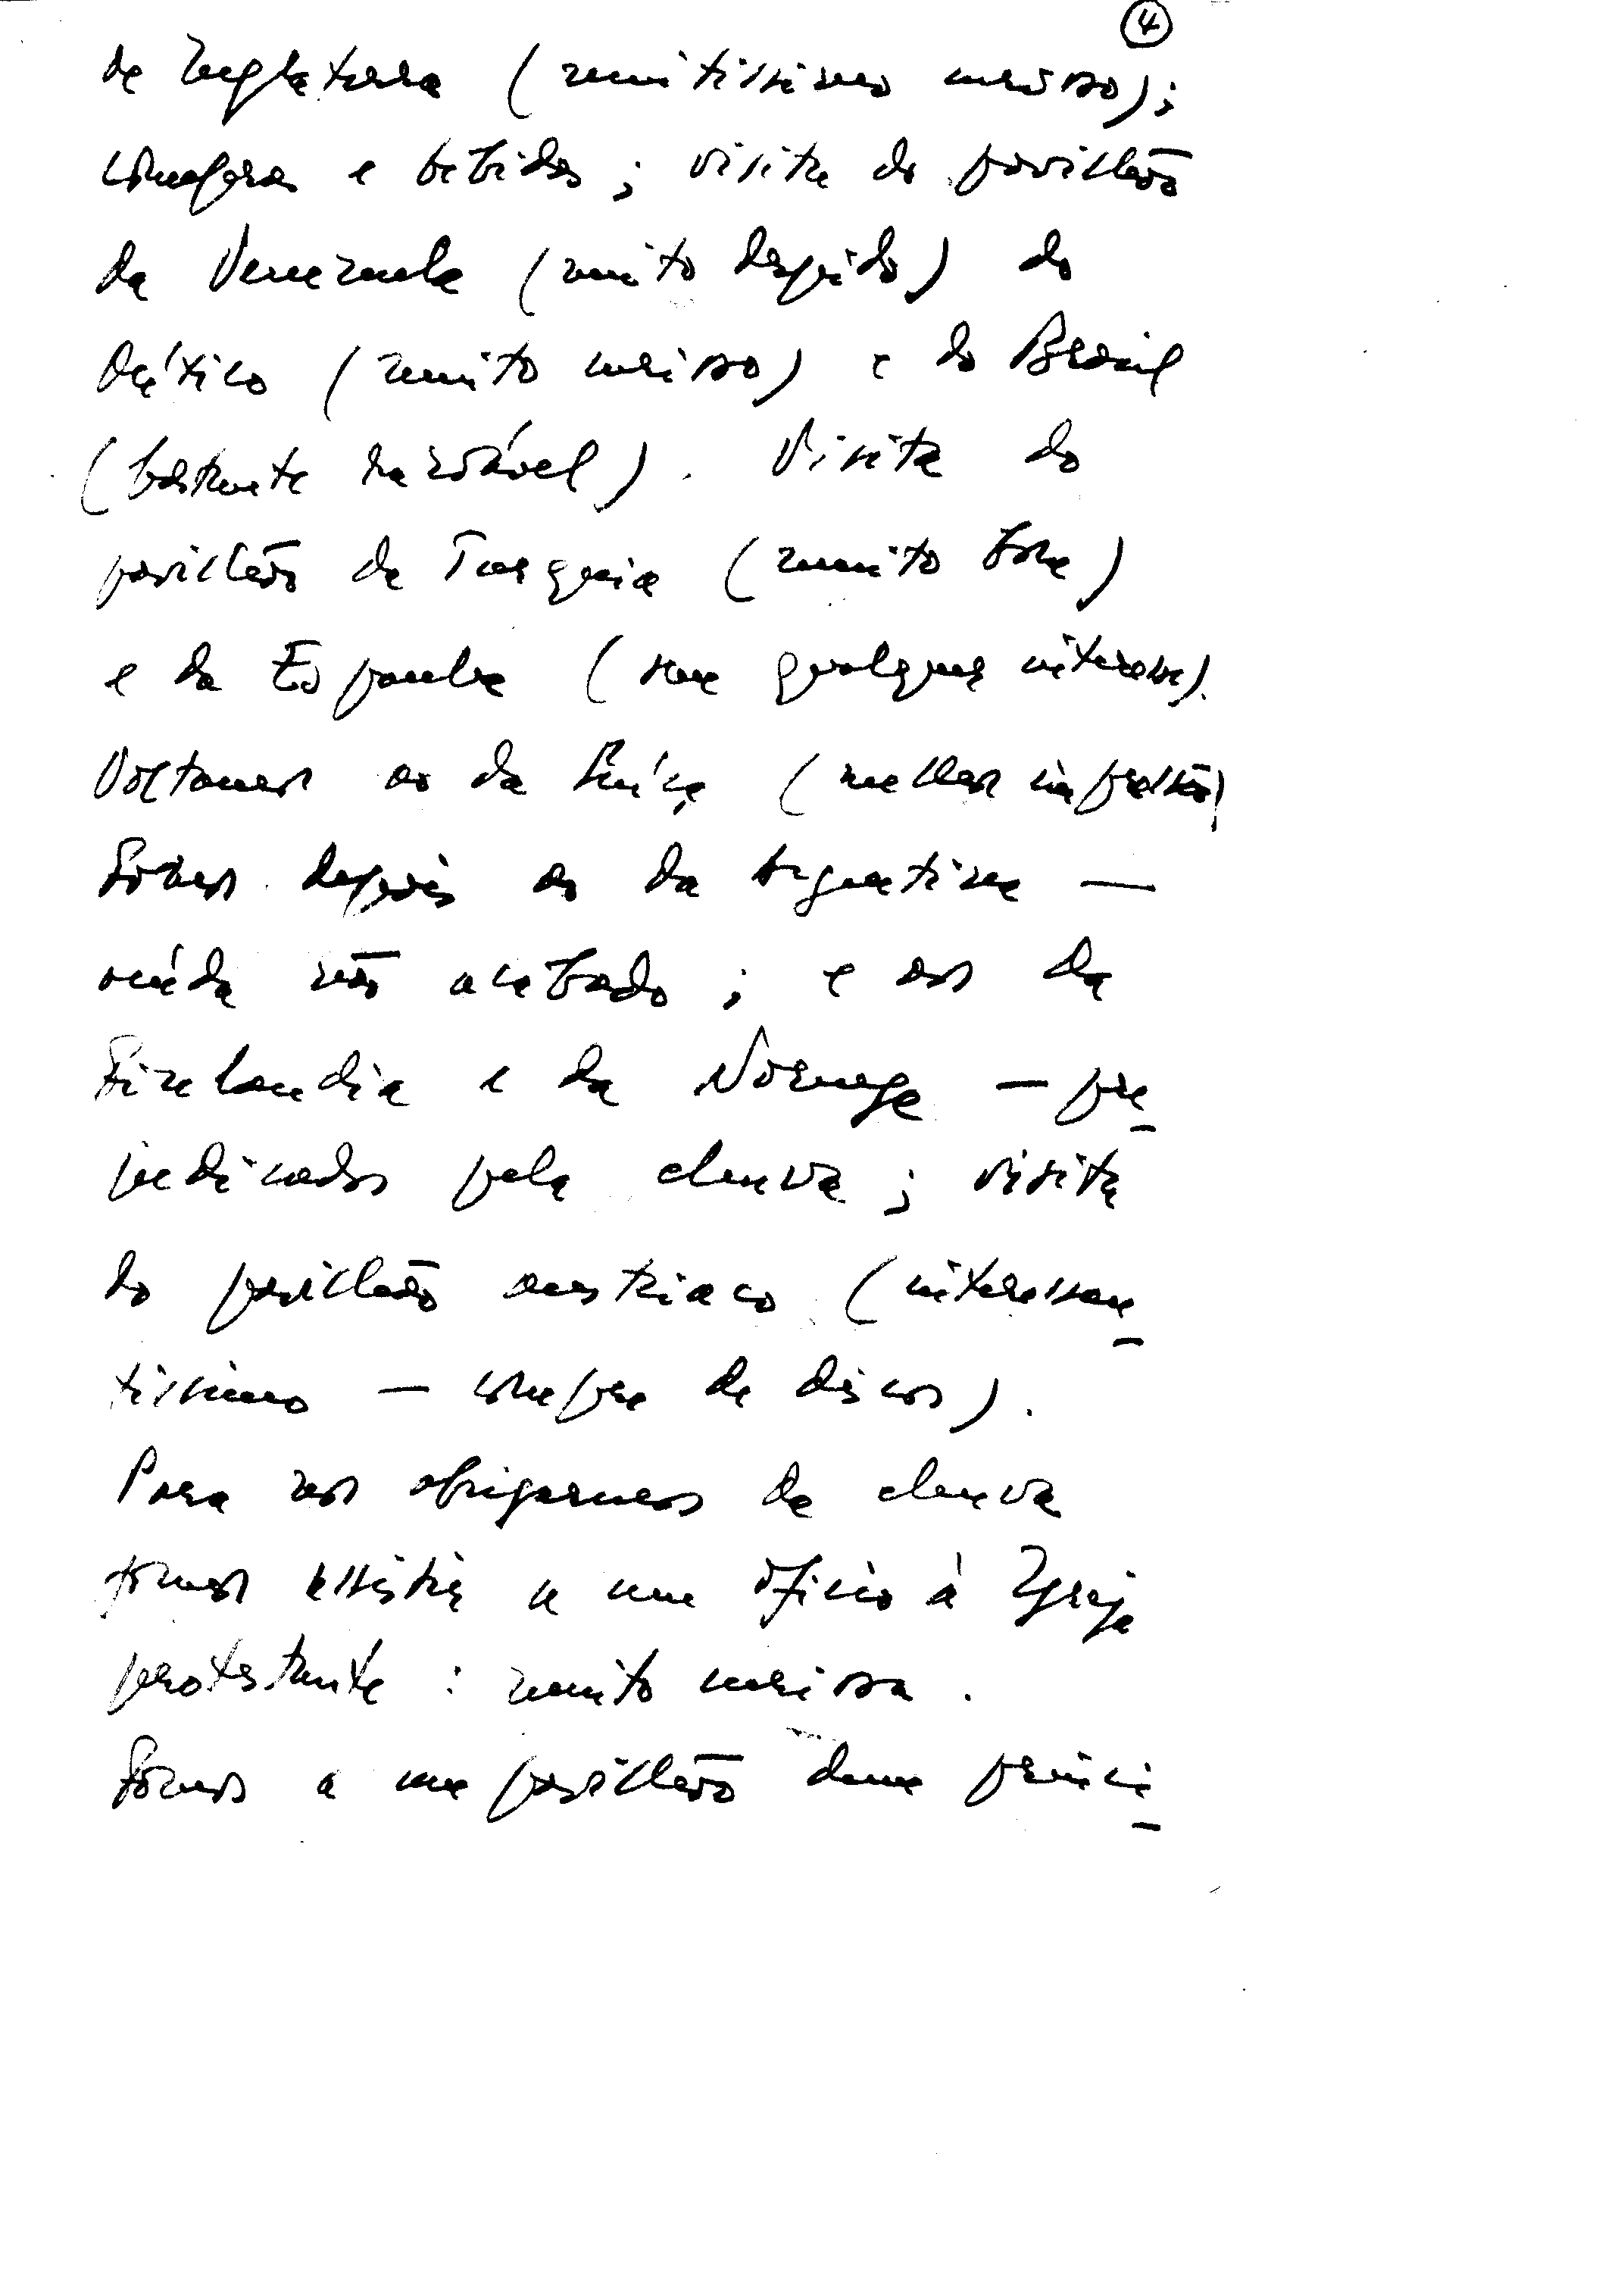 ④
da Inglaterra (muitissimo curioso);
compras e bebidas; visita do pavilhão
da Venezuela (muito despido) do
(muito curioso) e do Brasil
(bastante razoável). Visita do
pavilhão da Turquia (muito bom)
e da Espanha (sem qualquer interesse).
Voltamos ao da Suíça (melhor impressão)
Fomos depois ao da Argentina —
ainda não acabado; e aos da
Finlandia e da Noruega — pre-
judicados pela chuva; visita
do pavilhão austriaco (interessan-
tissimo — compra de discos).
Para nos abrigarmos da chuva
fomos assistir a um ofício à Igreja
protestante: muito curiosa.
Fomos a um pavilhão duma princi-